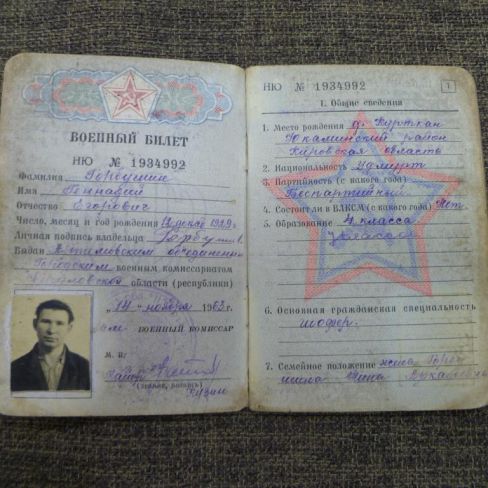 ВОЕННЫЙ БИЛЕТ
НЮ № 1934992
Фамилия Горбушин
Имя Геннадий
Отчество Егорович
Число, месяц и год рождения 1929г
Личная подпись владельца
Выдан Артемовским объединен
Городским военным комиссариатом
Свердловской области (республики)
„14" ноября 1963 г.
ВОЕННЫЙ КОМИССАР
М. П.
НЮ № 1934992
1
I. Общие сведения
1. Место рождения д. Вурткан
Юкаминский район
Кировская область
2. Национальность Удмурт
3. Партийность (с какого года)
Беспартийный
4. Состоит ли в ВЛКСМ (с какого года) Нет.
5. Образование 4 класса
6. Основная гражданская специальность
шофер.
7. Семейное положение жена Горбу
шина Нина